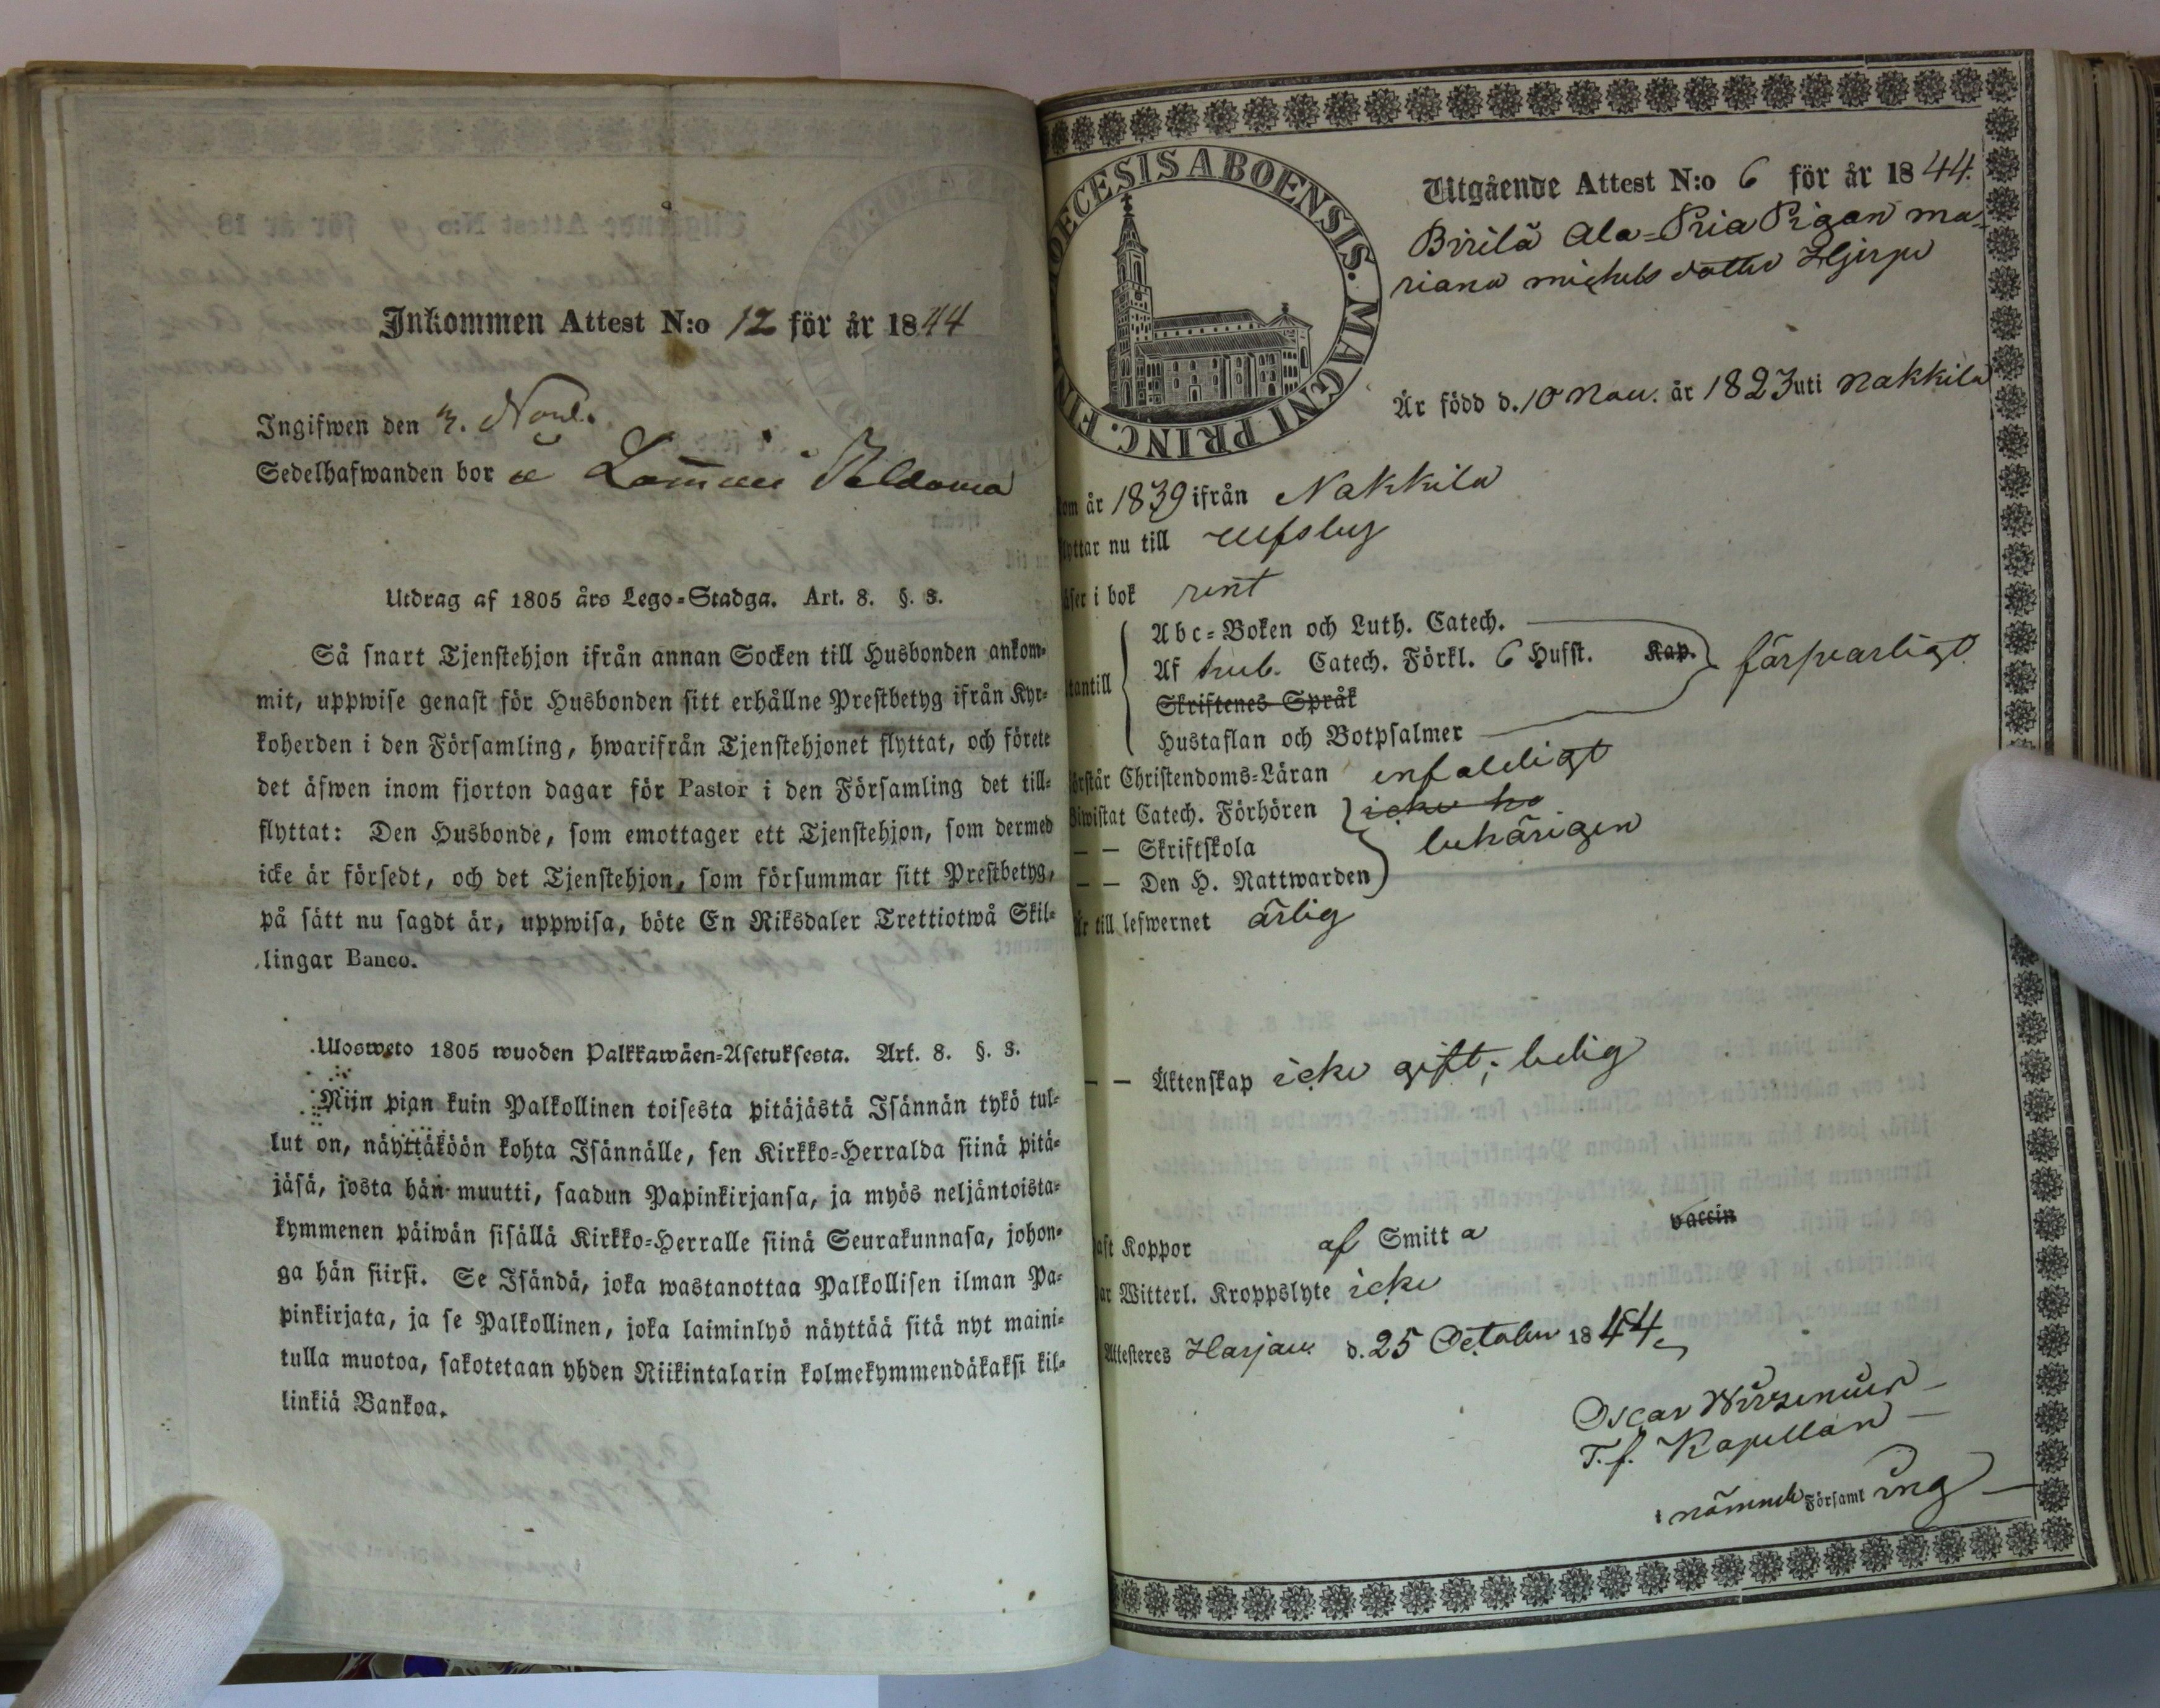 Inkommen Attest N:o 12 för år 1844
Ingifwen den 3. Novb.
Sedelhafwanden bor å
Utdrag af 1805 års Lego-Stadga. Art. 8. §. 3.
Så snart Tjenstehjon ifrån annan Socken till Husbonden ankom-
mit, uppwise genast för Husbonden sitt erhållne Prestbetyg ifrån Kyr-
koherden i den Församling, hwarifrån Tjenstehjonet flyttat, och förete
det äfwen inom fjorton dagar för Pastor i den Församling det till-
flyttat: Den Husbonde, som emottager ett Tjenstehjon, som dermed
icke är försedt, och det Tjenstehjon, som försummar sitt Prestbetyg,
på sätt nu sagdt är, uppwisa, böte En Riksdaler Trettiotwå Skil-
lingar Banco.
Ulosweto 1805 wuoden Palkkawäen-Asetuksesta. Art. 8. §. 3.
Niin pian kuin Palkollinen toisesta pitäjästä Isännän tykö tul-
lut on, näyttäköön kohta Isännälle, sen Kirkko-Herralda siinä pitä-
jäsä, josta hän muutti, saadun Papinkirjansa, ja myös neljäntoista-
kymmenen päiwän sisällä Kirkko-Herralle siinä Seurakunnasa, johon-
ga hän siirsi. Se Isändä, joka wastanottaa Palkollisen ilman Pa-
pinkirjata, ja se Palkollinen, joka laiminlyö näyttää sitä nyt maini-
tulla muotoa, sakotetaan yhden Riikintalarin kolmekymmendäkaksi kil-
linkiä Bankoa.
DIOECESIS ABOENSIS. MAGNI PRINC. FIN
Utgående Attest N:o 6 för år 1844.
Birilä Ala-Pria Pigan Ma-
riana Michels dotter Hjerpe
Är född d. 10 Nov. år 1823 uti Nakkila
kom år 1839 ifrån Nakkila
flyttar nu till Ulfsby
läser i bok rent
Abc-Boken och Luth. Catech.
utantill Af Catech. Förkl. 6 Hufst. Kap. försvarligt
Skriftenes Språk
Hustaflan och Botpsalmer
förstår Christendoms-Läran enfaldigt
Biwistat Catech. Förhören icke be
— — Skriftskola behörigen
— — Den H. Nattwarden
Är till lefwernet ärlig
— — Äktenskap icke gift; ledig
haft Koppor af Smitta vaccin
har Witterl. Kroppslyte icke
Attesteres Harjav. d. 25 October 1844.
Oscar
T. f. Kapellan
i nämnde Församling